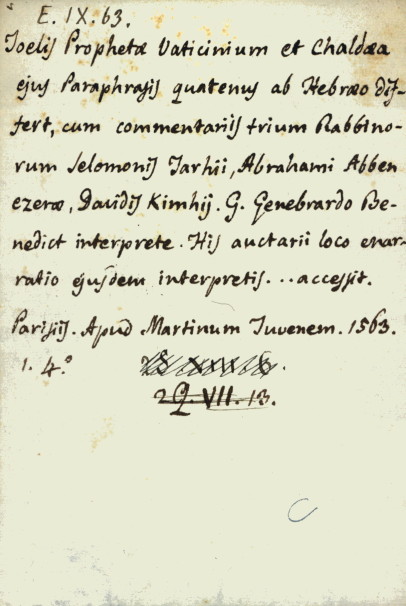 E. IX. 63.
Joelis Prophetæ Vaticinium et Chaldæa
ejus Paraphrasis quatenus ab Hebræo dif-
fert, cum commentariis trium Rabbino-
rum Selomonis Jarhii, Abrahami Abben
ezeræ, Davidis Kimhij. G. Genebrardo Be-
nedict interprete. His auctarii loco enar-
ratio ejusdem interpretis... accessit.
Parisiis. Apud Martinum Juvenem. 1563.
1. 4.º
2 Q. VII. 13.